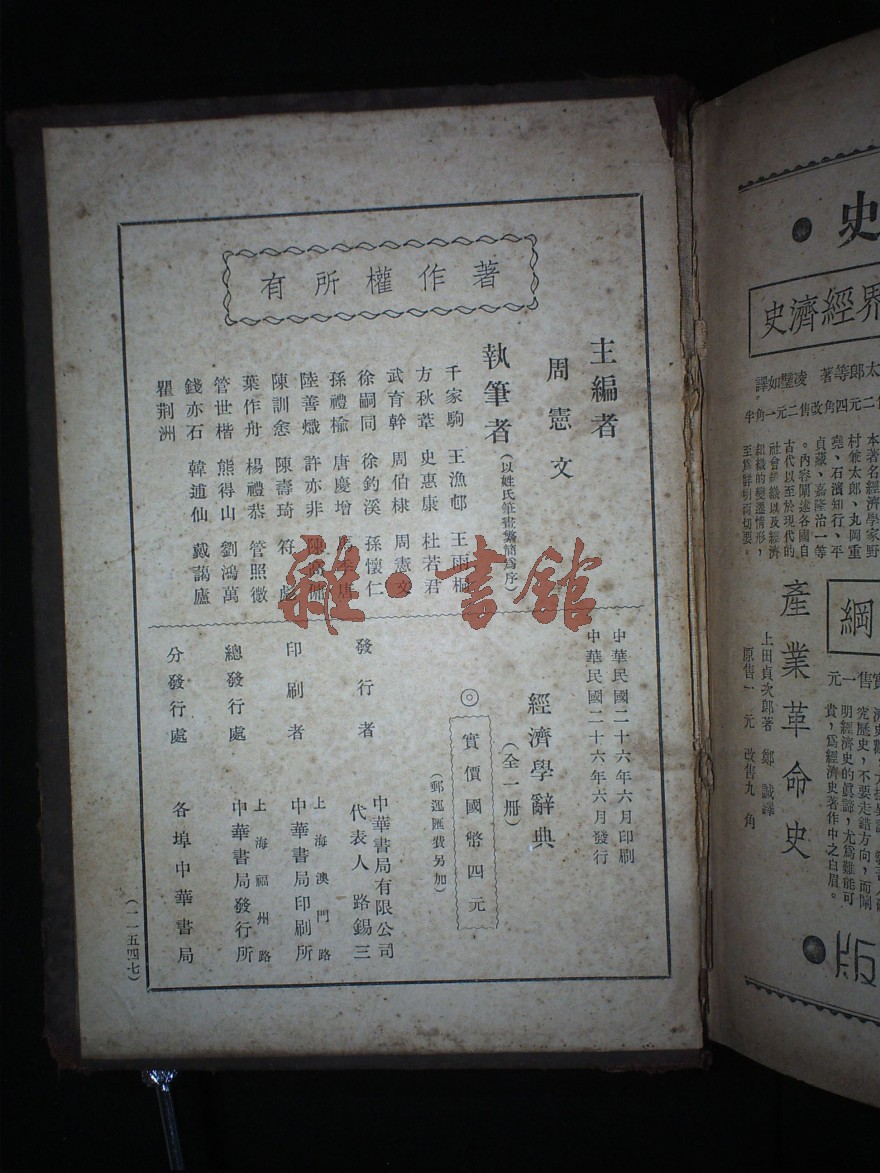 著作權所有
主編者
周憲文
執筆者(以姓氏筆畫繁簡爲序)
千家駒 王漁邨 王雨桐
方秋葦 史惠康 杜若君
武育幹 周伯棣 周憲文
徐嗣同 徐鈞溪 孫懷仁
孫禮榆 唐慶增
陸善熾 許亦非
陳訓悆 陳壽琦 符彪
葉作舟 楊禮恭 管照微
管世楷 熊得山 劉鴻萬
錢亦石 韓逋仙 戴藹廬
瞿荆洲
中華民國二十六年六月印刷
中華民國二十六年六月發行
經濟學辭典
(全一册)
◎實價國幣四元
(郵運匯費另加)
發行者 中華書局有限公司
代表人 路錫三
印刷者 上海澳門路
中華書局印刷所
總發行處 上海福州路
中華書局發行所
分發行處 各埠中華書局
(一一五四七)
雜·書館
史
界經濟史
太郎等著 凌璧如譯
二元四角改售二元一角半
本著名經濟學家野
村兼太郎、丸岡重
堯、石濱知行、平
貞藏、嘉隆治一等
。内容闡述各國自
古代以至於現代的
社會組織以及經濟
組織的變遷情形，
至爲鮮明而切要。
綱
實售一元
產業革命史
上田貞次郎著 鄭誠譯
原售一元 改售九角
究歷史，不要走錯方向，而闡
明經濟史的眞諦，尤爲難能可
貴，爲經濟史著作中之白眉。
版